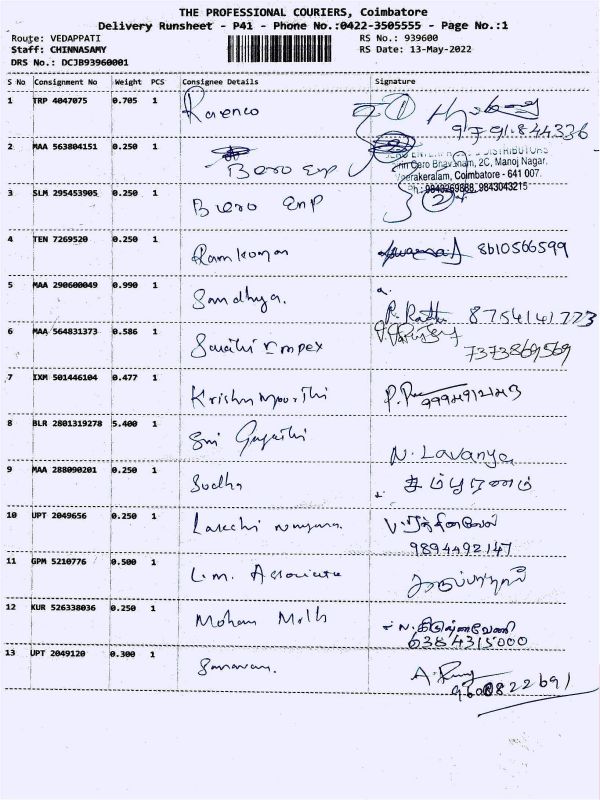 THE PROFESSIONAL COURIERS, Coimbatore
Delivery Runsheet - P41 - Phone No.:0422-3505555 - Page No.:1
Route: VEDAPPATI RS No.: 939600
Staff: CHINNASAMY RS Date: 13-May-2022
DRS No.: DCJB93960001
S No Consignment No Weight PCS Consignee Details Signature
1 TRP 4047075 0.705 1 ①
2 MAA 563804151 0.250 1 Bero Enp
DISTRIBUTORS
2C, Manoj Nagar,
Coimbatore - 641 007.
9843043215
3 SLM 295453905 0.250 1 Bero Enp ②
4 TEN 7269520 0.250 1 Ramkumar 8610566599
5 MAA 290600049 0.990 1 Sandhya. 8754141773
6 MAA 564831373 0.586 1 Impex
7373869569
7 IXM 501446104 0.477 1 Krishnamoorthi
8 BLR 2801319278 5.400 1 Sri Gayathri N. Lavanya
9 MAA 288090201 0.250 1 Sudha
10 UPT 2049656 0.250 1
9894492147
11 GPM 5210776 0.500 1 L.m. Associate
12 KUR 526338036 0.250 1 Mohan
6384315000
13 UPT 2049120 0.300 1 Saravan.